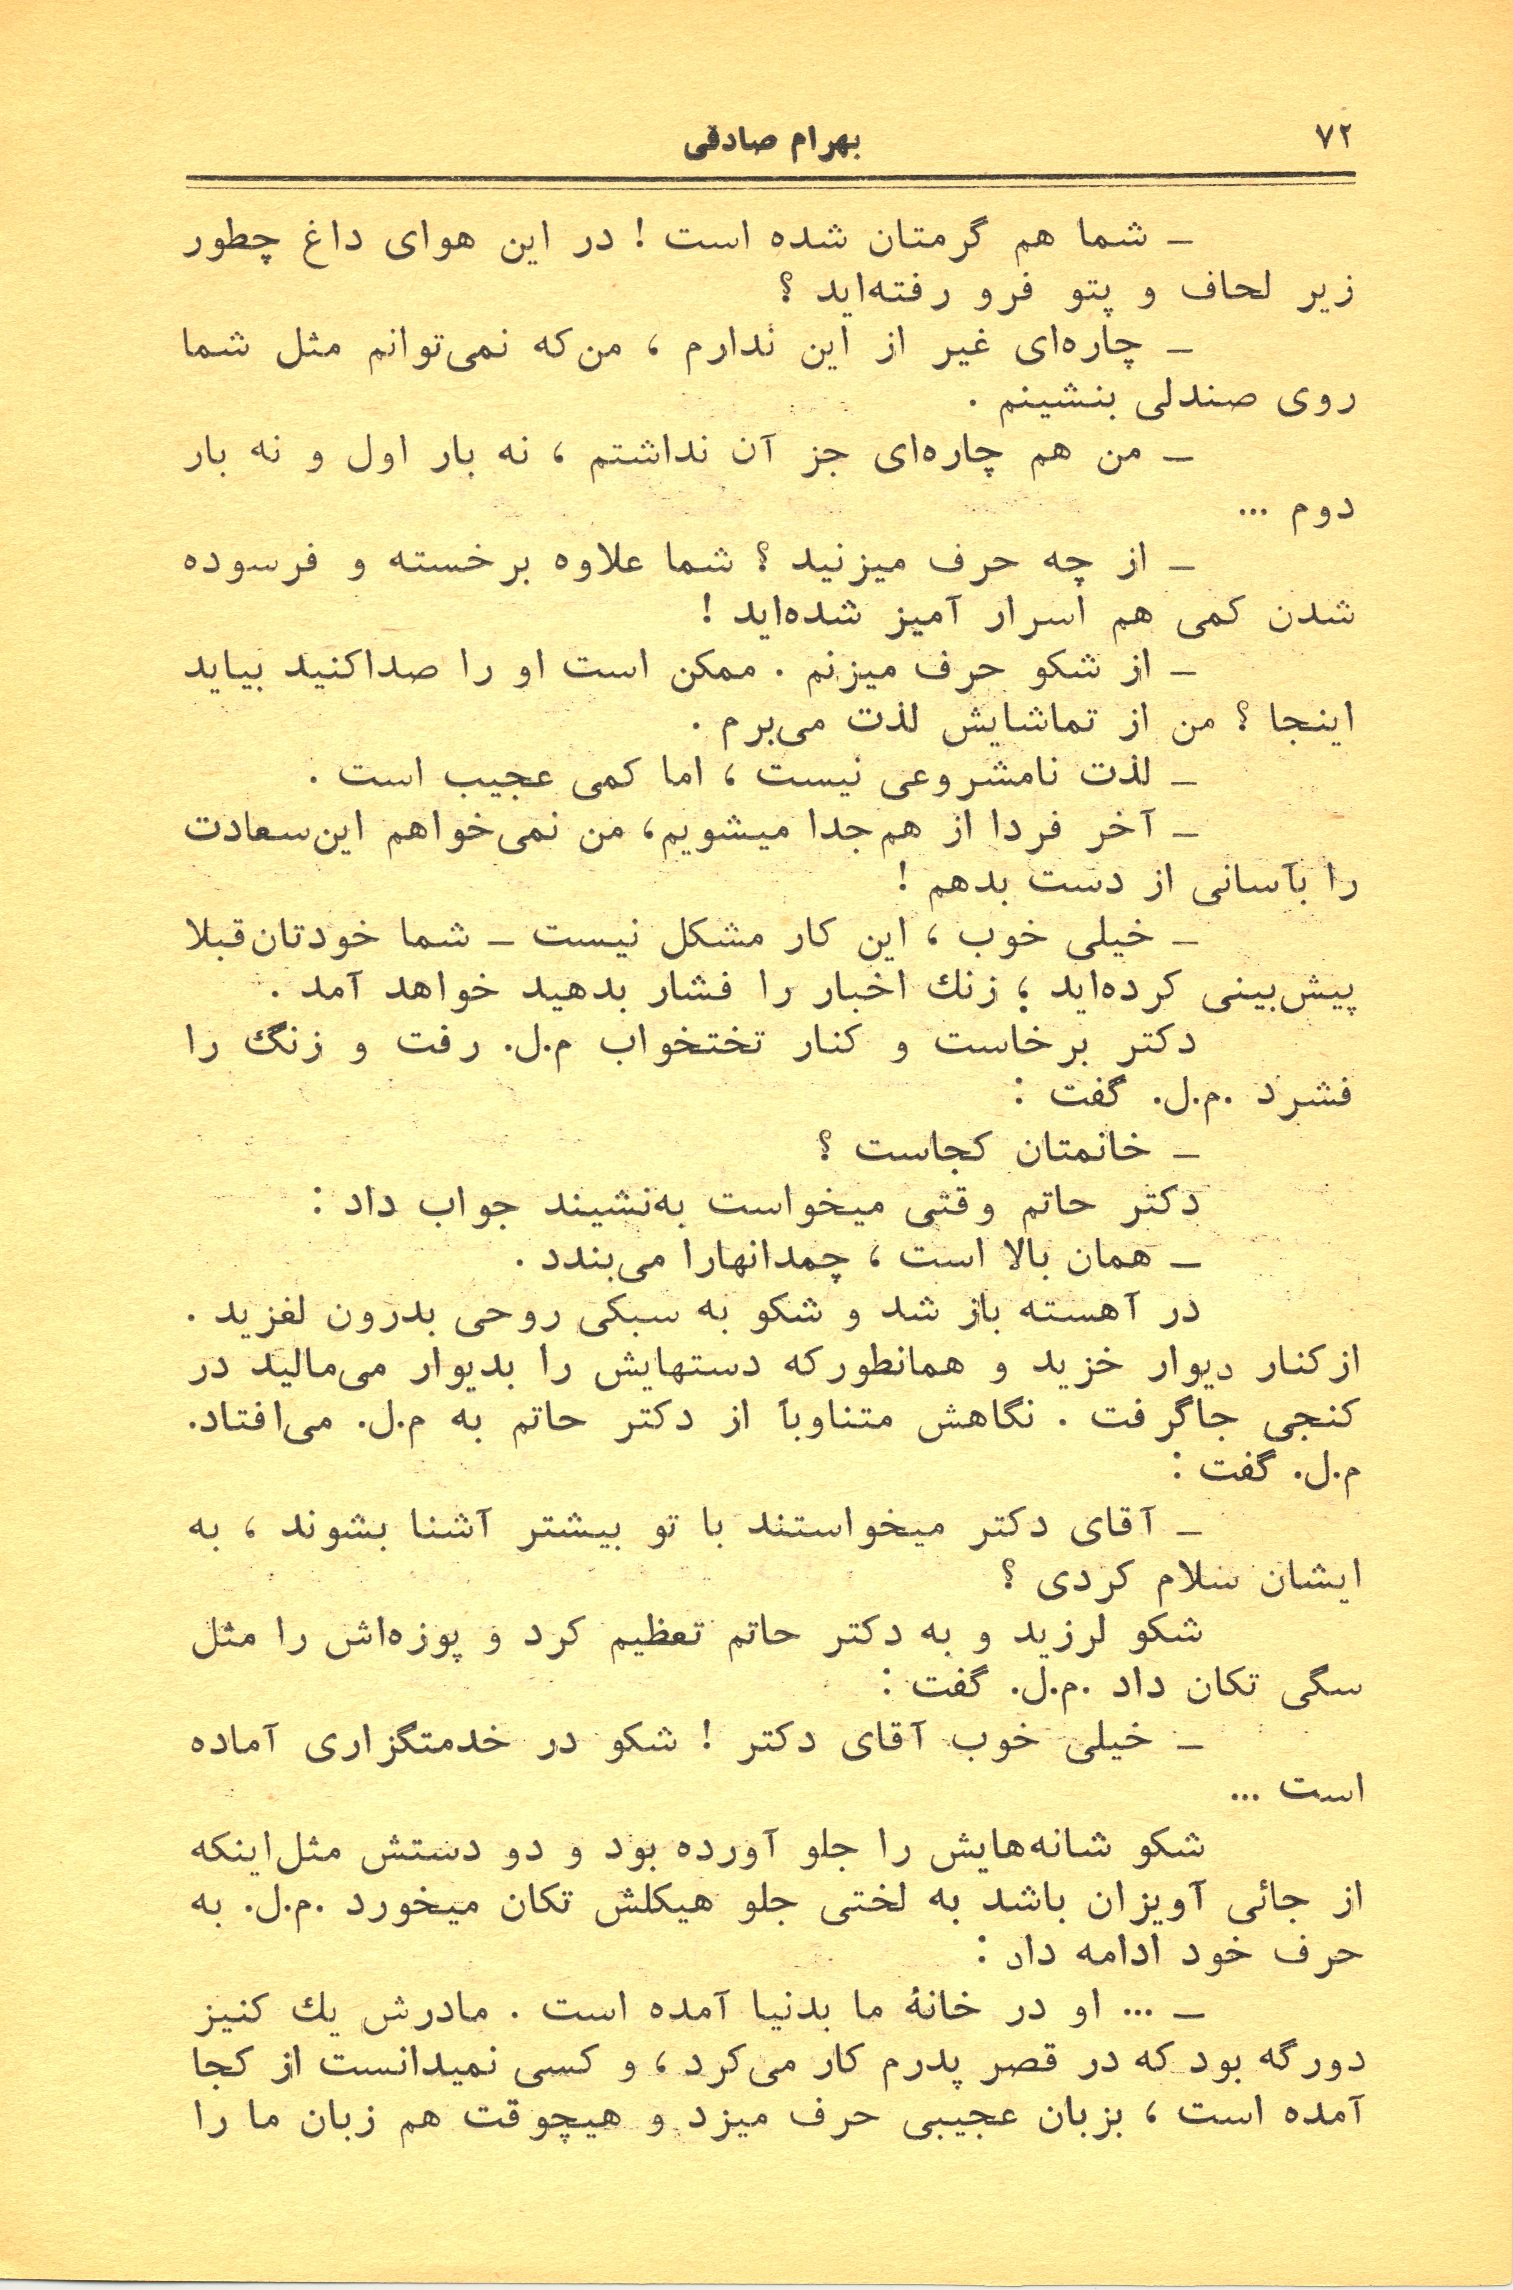 ۷۲
بهرام صادقی
ـ شما هم گرمتان شده است ! در این هوای داغ چطور
زیر لحاف و پتو فرو رفته‌اید ؟
ـ چاره‌ای غیر از این ندارم ، من‌که نمی‌توانم مثل شما
روی صندلی بنشینم .
ـ من هم چاره‌ای جز آن نداشتم ، نه بار اول و نه بار
دوم ...
ـ از چه حرف میزنید ؟ شما علاوه برخسته و فرسوده
شدن کمی هم اسرار آمیز شده‌اید !
ـ از شکو حرف میزنم . ممکن است او را صداکنید بیاید
اینجا ؟ من از تماشایش لذت می‌برم .
ـ لذت نامشروعی نیست ، اما کمی عجیب است .
ـ آخر فردا از هم‌جدا میشویم، من نمی‌خواهم این‌سعادت
را بآسانی از دست بدهم !
ـ خیلی خوب ، این کار مشکل نیست ـ شما خودتان‌قبلا
پیش‌بینی کرده‌اید ؛ زنك اخبار را فشار بدهید خواهد آمد .
دکتر برخاست و کنار تختخواب م.ل. رفت و زنگ را
فشرد .م.ل. گفت :
ـ خانمتان کجاست ؟
دکتر حاتم وقتی میخواست به‌نشیند جواب داد :
ـ همان بالا است ، چمدانهارا می‌بندد .
در آهسته باز شد و شکو به سبکی روحی بدرون لغزید .
ازکنار دیوار خزید و همانطورکه دستهایش را بدیوار می‌مالید در
کنجی جاگرفت . نگاهش متناوباً از دکتر حاتم به م.ل. می‌افتاد.
م.ل. گفت :
ـ آقای دکتر میخواستند با تو بیشتر آشنا بشوند ، به
ایشان سلام کردی ؟
شکو لرزید و به دکتر حاتم تعظیم کرد و پوزه‌اش را مثل
سگی تکان داد .م.ل. گفت :
ـ خیلی خوب آقای دکتر ! شکو در خدمتگزاری آماده
است ...
شکو شانه‌هایش را جلو آورده بود و دو دستش مثل‌اینکه
از جائی آویزان باشد به لختی جلو هیکلش تکان میخورد .م.ل. به
حرف خود ادامه داد :
ـ ... او در خانهٔ ما بدنیا آمده است . مادرش یك کنیز
دورگه بود که در قصر پدرم کار می‌کرد ، و کسی نمیدانست از کجا
آمده است ، بزبان عجیبی حرف میزد و هیچوقت هم زبان ما را